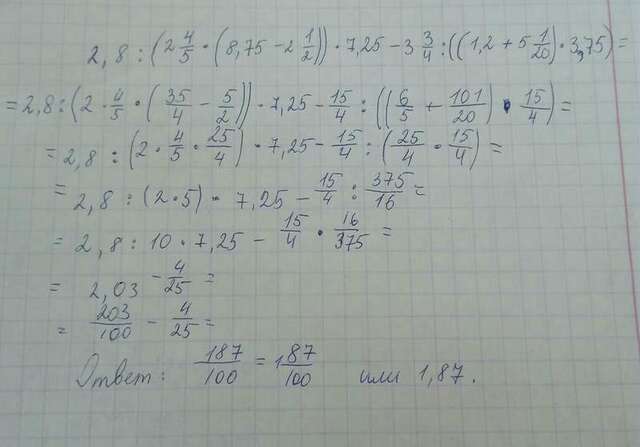 2,8 : (2 4/5 · (8,75 - 2 1/2)) · 7,25 - 3 3/4 : ((1,2 + 5 1/20) · 3,75) =
= 2,8 : (2 · 4/5 · (35/4 - 5/2)) · 7,25 - 15/4 : ((6/5 + 101/20) · 15/4) =
= 2,8 : (2 · 4/5 · 25/4) · 7,25 - 15/4 : (25/4 · 15/4) =
= 2,8 : (2 · 5) · 7,25 - 15/4 : 375/16 =
= 2,8 : 10 · 7,25 - 15/4 · 16/375 =
= 2,03 - 4/25 =
= 203/100 - 4/25 =
Ответ: 187/100 = 1 87/100 или 1,87.